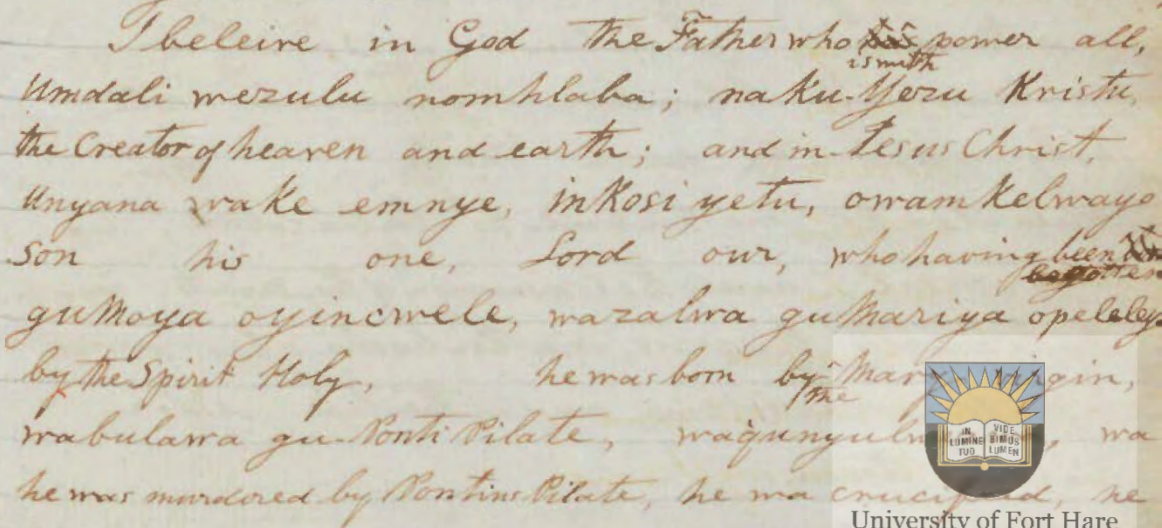 I beleive in God the Father who is with power all,
Umdali wezulu nomhlaba; naku-Yezu Kristu,
the Creator of heaven and earth; and in Jesus Christ,
Unyana wake emnye, inkosi yetu, owamkelwayo
Son his one, Lord our, who having been begotten
guMoya oyincwele, wazalwa guMariya opeleleyo
by the Spirit Holy, he was born by the Mary virgin,
wabulawa gu-Ponti Pilate, wa
he was murdered by Pontius Pilate, he wa crucified, he
IN LUMINE TUO VIDE BIMUS LUMEN
University of Fort Hare